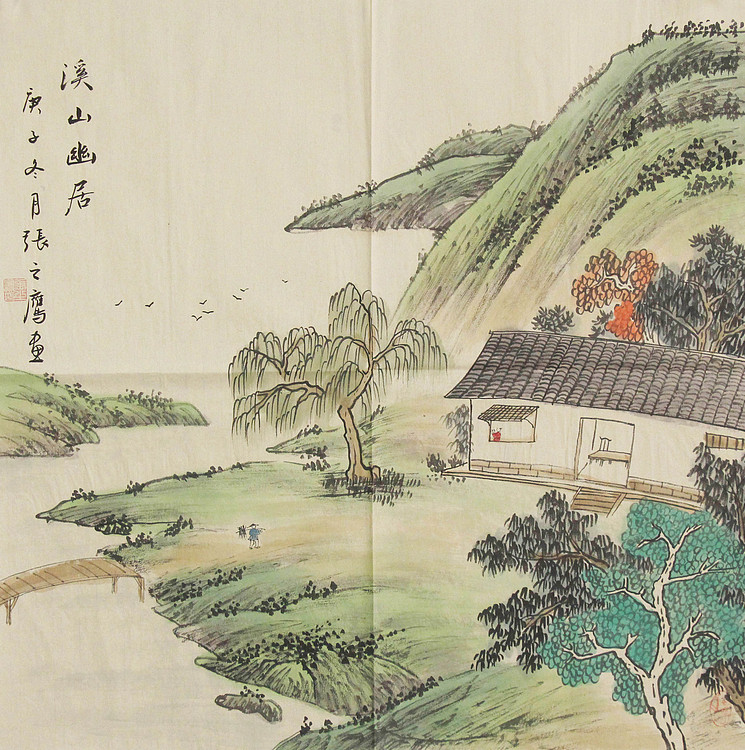 溪山幽居
庚子冬月張之鷹畫